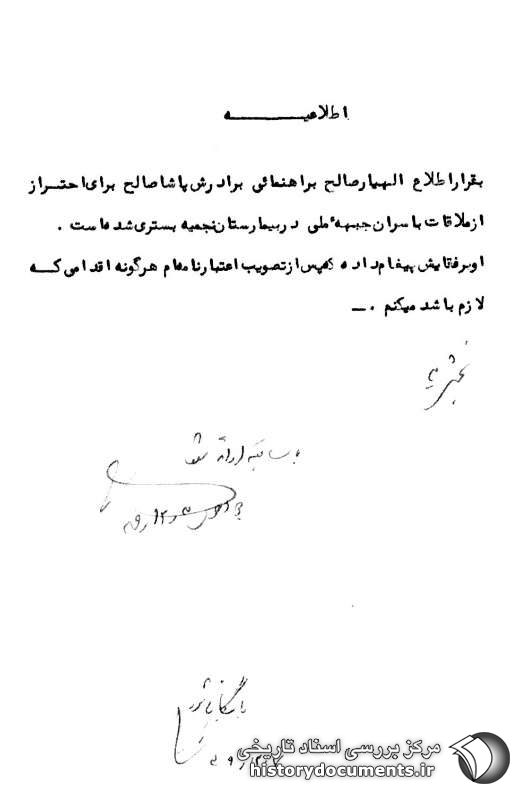 اطلاعیـــــــــه
بقراراطلاع الهیارصالح براهنمائی برادرش پاشاصالح برای احتـراز
ازملاقات باسران جبهه ملی دربیمارستان نجمیه بستری شده است .
او برفقایش پیغام داده که پس ازتصویب اعتبارنامه ام هرگونه اقدامی کـه
لازم باشد میکنم . ــ
باسابقه ارائه شود
بایگانی شود
مرکز بررسی اسناد تاریخی
historydocuments.ir